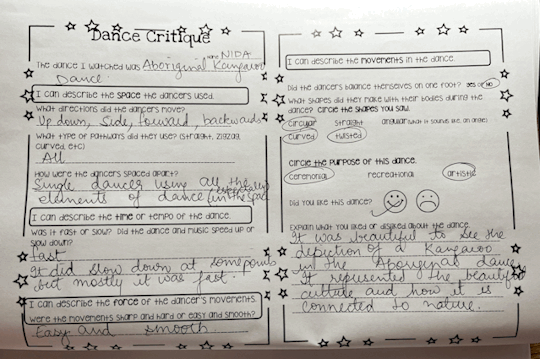 Dance Critique
Name NIDA
The dance I watched was Aboriginal Kangaroo
Dance.
I can describe the space the dancers used.
What directions did the dancers move?
Up down, side, forward, backwards
What type of pathways did they use? (straight, zigzag,
curved, etc)
All
How were the dancers spaced apart?
Single dancer using all the
elements of dance (especially in the space
I can describe the time or tempo of the dance.
Was it fast or slow? Did the dance and music speed up or
slow down?
fast
It did slow down at some points
but mostly it was fast.
I can describe the force of the dancer's movements.
Were the movements sharp and hard or easy and smooth?
Easy and smooth
I can describe the movements in the dance.
Did the dancers balance themselves on one foot? yes or no
What shapes did they make with their bodies during the
dance? Circle the shapes you saw.
circular straight angular (what it sounds like, an angle)
curved twisted
Circle the purpose of this dance.
ceremonial recreational artistic
Did you like this dance?
Explain what you liked or disliked about the dance.
It was beautiful to see the
depiction of a Kangaroo
in the Aboriginal dance
It represented the beautiful
culture and how it is
connected to nature.